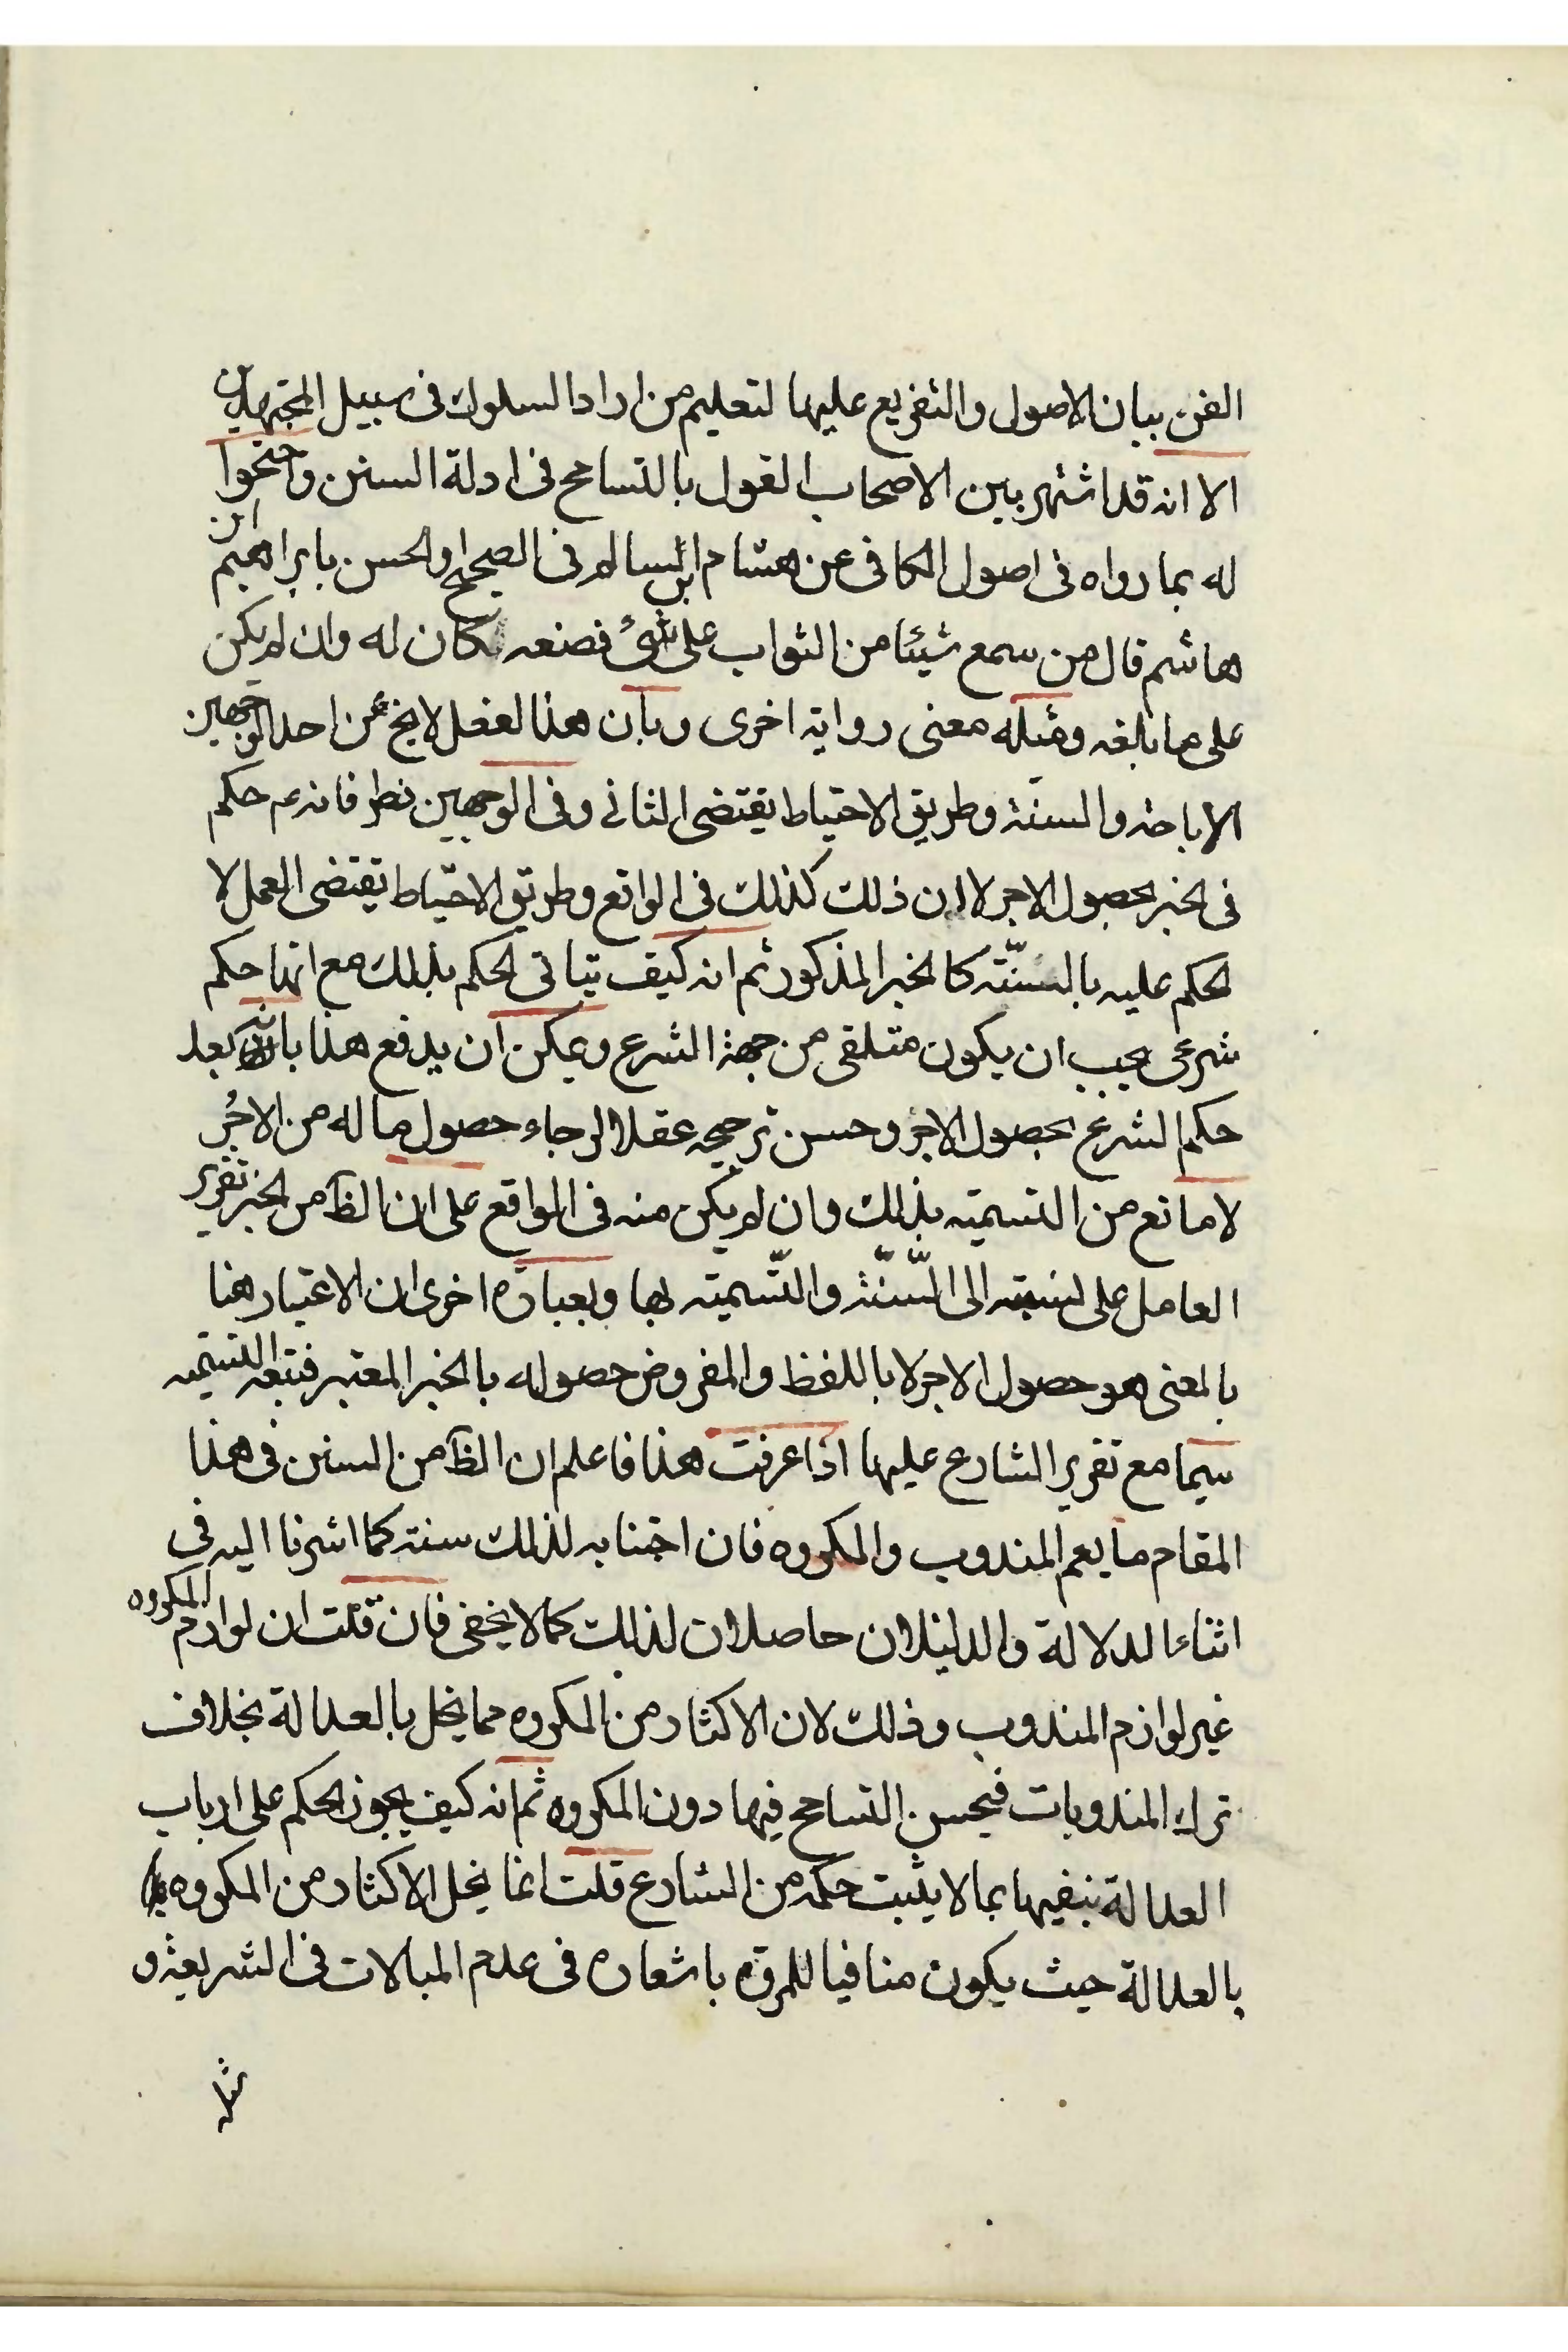 الفن بيان الاصول والتفريع عليها لتعليم من اراد السلوك فى سبيل المجتهدين
الا انه قد اشتهر بين الاصحاب القول بالتسامح فى ادلة السنن واحتجوا
له بما رواه فى اصول الكافى عن هشام ابن سالم فى الصحيح اولحسن بابراهيم ابن
هاشم قال من سمع شيئا من الثواب على شىء فصنعه كان له وان لم يكن
على ما بلغه ومثله معنى رواية اخرى وبان هذا لفعل لا يخ عن احد الوجهين
الاباحة والسنة وطريق الاحتياط يقتضى الثانى وفى الوجهين نظر فانه ع م حكم
فى لخبر بحصول الاجر لا ان ذلك كذلك فى الواقع وطريق الاحتياط يقتضى العمل لا
لحكم عليه بالسنّته كالخبر المذكور ثم انه كيف يتاتى لحكم بذلك مع انها حكم
شرعى يجب ان يكون متلقى من جهة الشرع ويمكن ان يدفع هذا بانه بعد
حكم الشرع بحصول الاجر وحسن ترجيحه عقلا لرجاء حصول ما له من الاجر
لا مانع من التسميته بذلك وان لم يكن منه فى الواقع على ان الظ من لخبر تقرير
العامل على نسبته الى السّنّة والتّسميته بها وبعبارة اخرى ان الاعتبار هنا
بالمعنى هو حصول الاجر لا باللفظ والمفروض حصوله بالخبر المعتبر فتتبعه التسميه
سيما مع تقرير الشارع عليها اذا عرفت هذا فاعلم ان الظ من السنن فى هذا
المقام ما يعم المندوب والمكروه فان اجتنابه لذلك سنته كما اشرنا اليه فى
اثناء الدلالة والدليلان حاصلان لذلك كما لا يخفى فان قلت ان لوازم المكروه
غير لوازم المندوب وذلك لان الاكثار من المكروه مما يخل بالعدالة بخلاف
ترك المندوبات فيحسن التسامح فيها دون المكروه ثم انه كيف يجوز لحكم على ارباب
العدالة بنفيها بما لا يثبت حكمه من الشارع قلت انما يخل الاكثار من المكروه
بالعدالة حيث يكون منافيا للمروّه باشعاره فى عدم المبالات فى الشريعة و